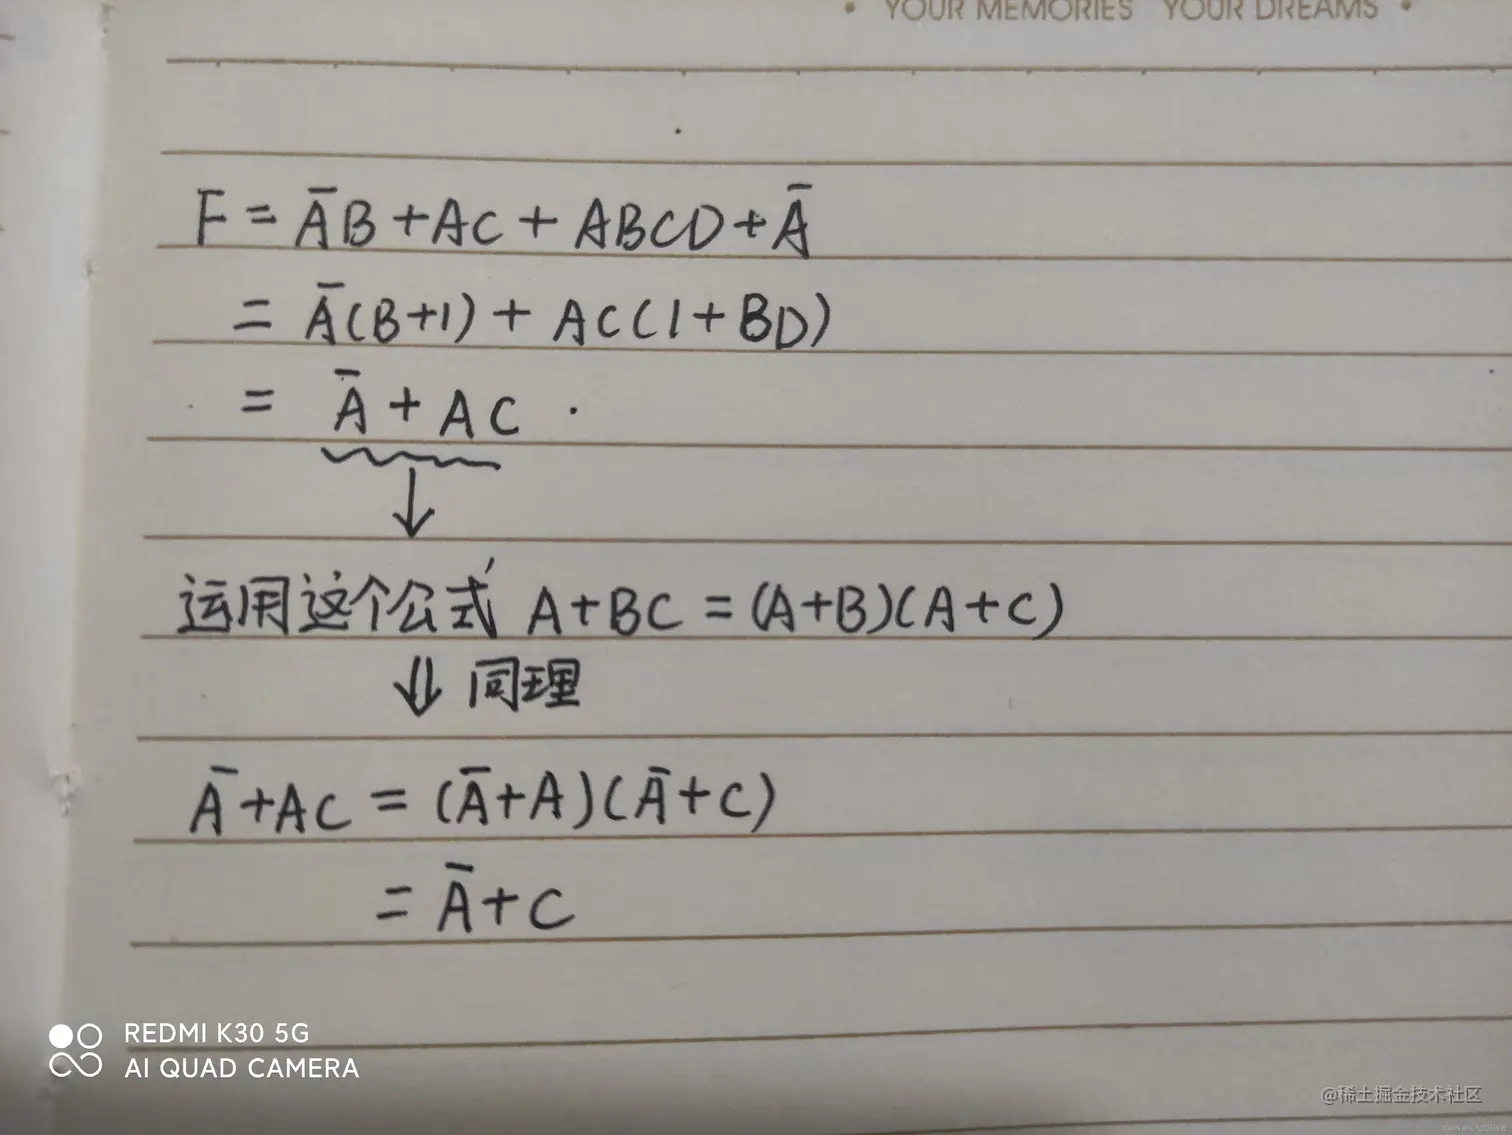 • YOUR MEMORIES YOUR DREAMS •
F = A̅B + AC + ABCD + A̅
= A̅(B+1) + AC(1+BD)
= A̅ + AC .
↓
运用这个公式 A+BC = (A+B)(A+C)
⇓ 同理
A̅+AC = (A̅+A)(A̅+C)
= A̅+C
REDMI K30 5G
AI QUAD CAMERA
@稀土掘金技术社区